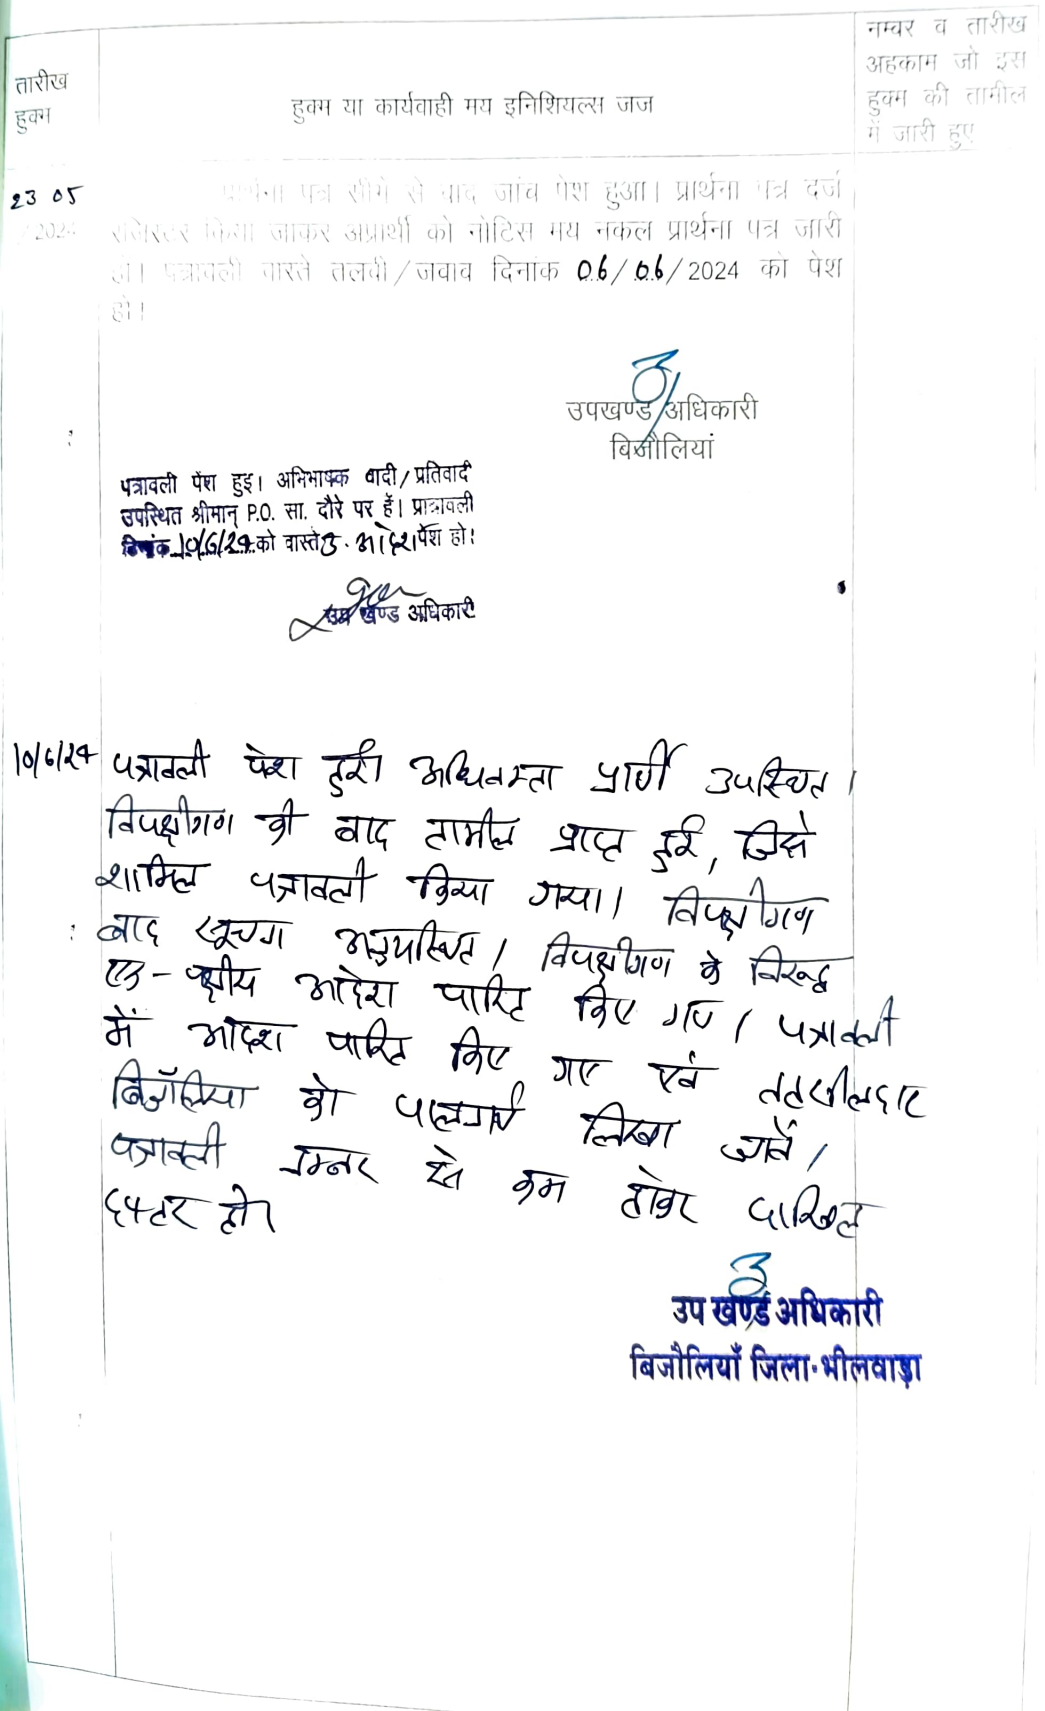 तारीख
हुक्म
हुक्म या कार्यवाही मय इनिशियल्स जज
नम्बर व तारीख
अहकाम जो इस
हुक्म की तामील
में जारी हुए
23 05
/2024
प्रार्थना पत्र सीगे से बाद जांच पेश हुआ। प्रार्थना पत्र दर्ज
रजिस्टर किया जाकर अप्रार्थी को नोटिस मय नकल प्रार्थना पत्र जारी
हो। पत्रावली वास्ते तलवी/जवाव दिनांक 06/06/2024 को पेश
हो।
उपखण्ड अधिकारी
बिजौलियां
पत्रावली पेश हुइ। अभिभाषक वादी/प्रतिवादी
उपस्थित श्रीमान् P.O. सा. दौरे पर हैं। प्रात्रावली
दिनांक 10/6/24 को वास्ते उ. आदेश पेश हो।
उप खण्ड अधिकारी
10/6/24 पत्रावली पेश हुई। अधिवक्ता प्रार्थी उपस्थित।
विपक्षीगण की बाद तामील प्राप्त हुई, जिसे
शामिल पत्रावली किया गया। विपक्षीगण
बाद सूचना अनुपस्थित। विपक्षीगण के विरूद्ध
एक-पक्षीय आदेश पारित किए गए। पत्रावली
में आदेश पारित किए गए एवं तहसीलदार
बिजौलिया को पालनार्थ लिखा जावें।
पत्रावली नम्बर से कम होकर दाखिल
दफ्तर हो।
उप खण्ड अधिकारी
बिजौलियाँ जिला-भीलवाड़ा